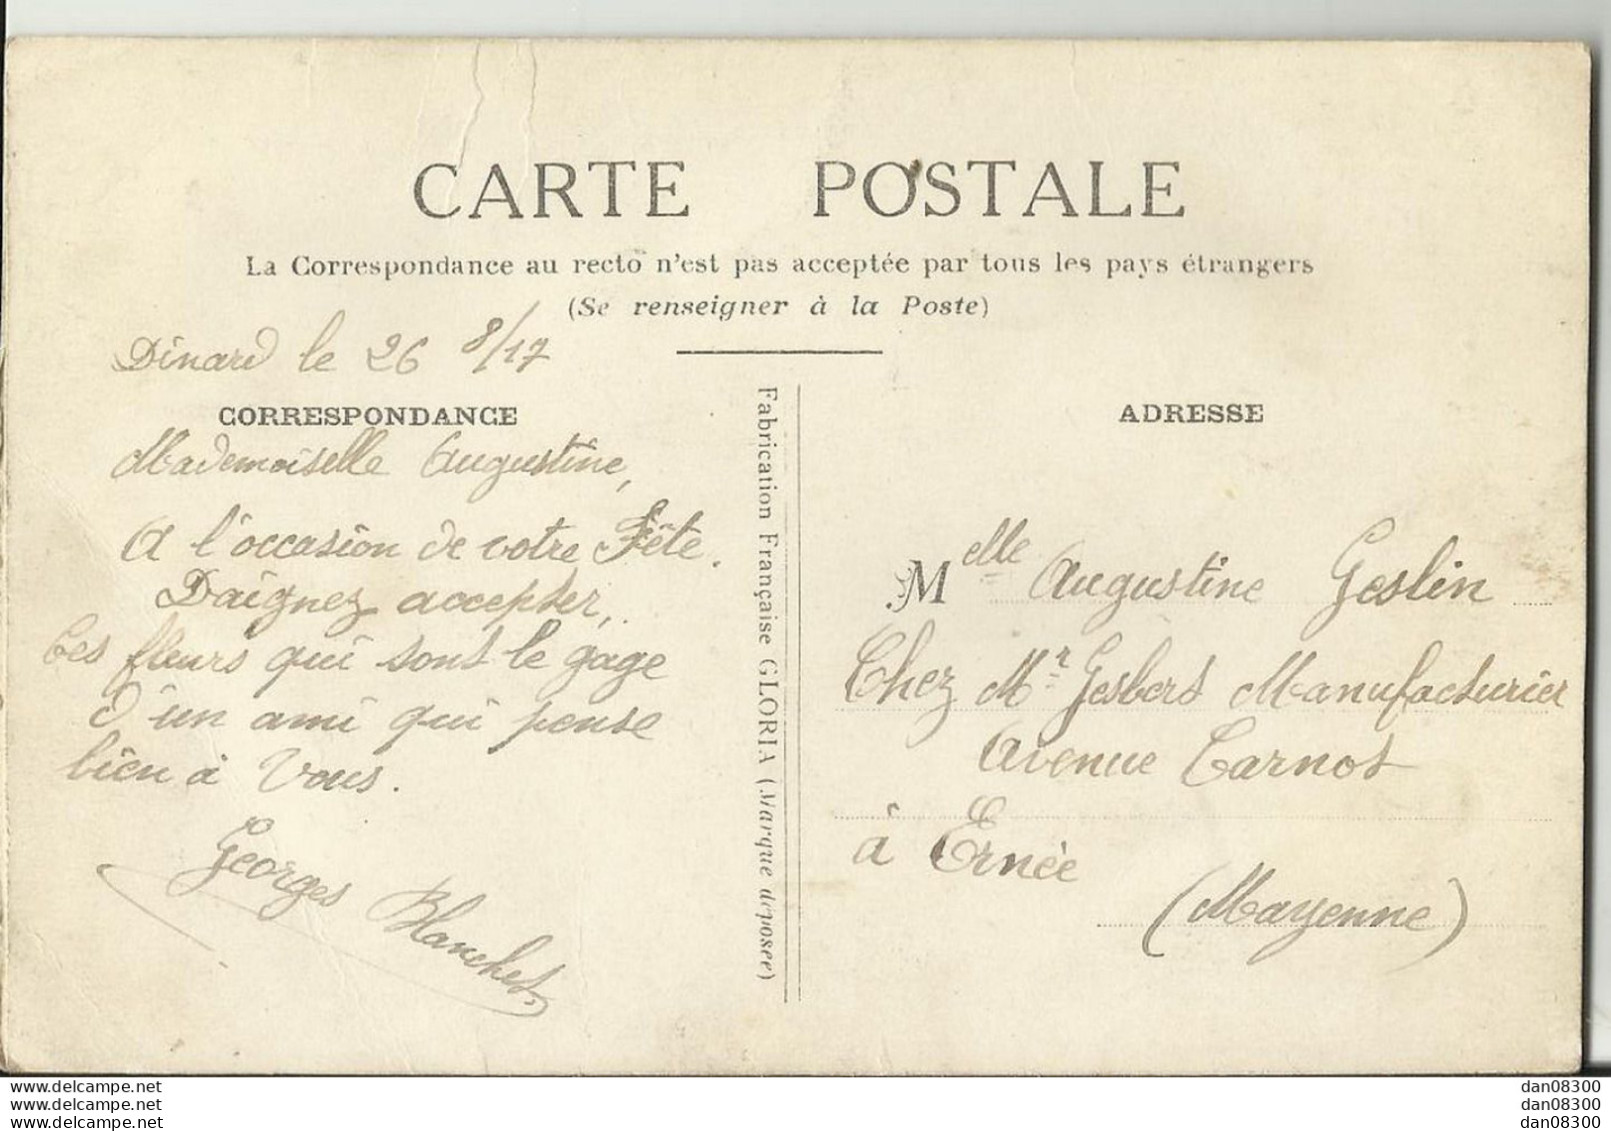 CARTE POSTALE
La Correspondance au recto n'est pas acceptée par tous les pays étrangers
(Se renseigner à la Poste)
Dinard le 26 8/17
CORRESPONDANCE
Mademoiselle Augustine,
A l'occasion de votre Fête.
Daignez accepter,
Ces fleurs qui sont le gage
d'un ami qui pense
bien à Vous.
Georges Blanchet
Fabrication Française GLORIA (Marque déposée)
ADRESSE
Melle Augustine Geslin
Chez Mr Gesbert Manufacturier
Avenue Carnot
à Ernée
(Mayenne)
www.delcampe.net
www.delcampe.net
www.delcampe.net
dan08300
dan08300
dan08300